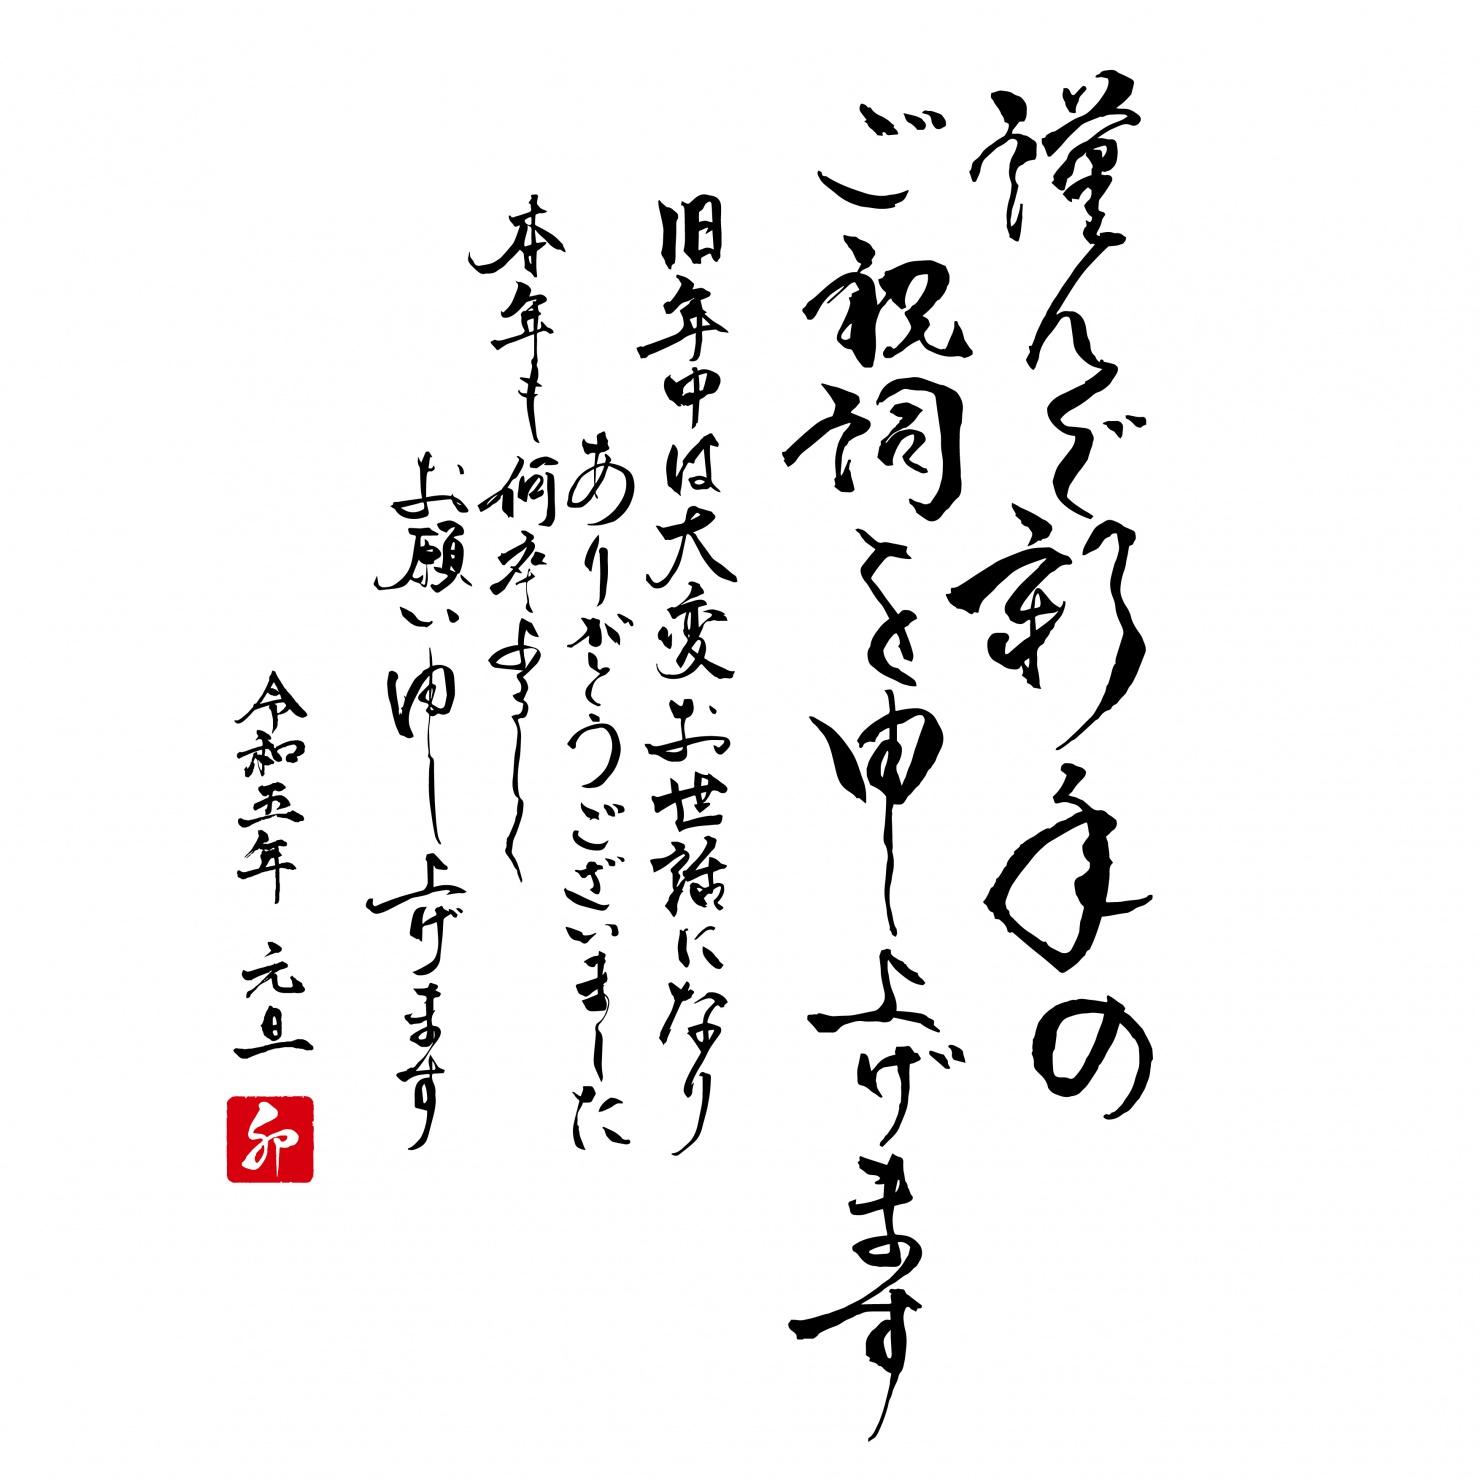 謹んで新年の
ご祝詞を申し上げます
旧年中は大変お世話になり
ありがとうございました
本年も何卒よろしく
お願い申し上げます
令和五年 元旦
卯